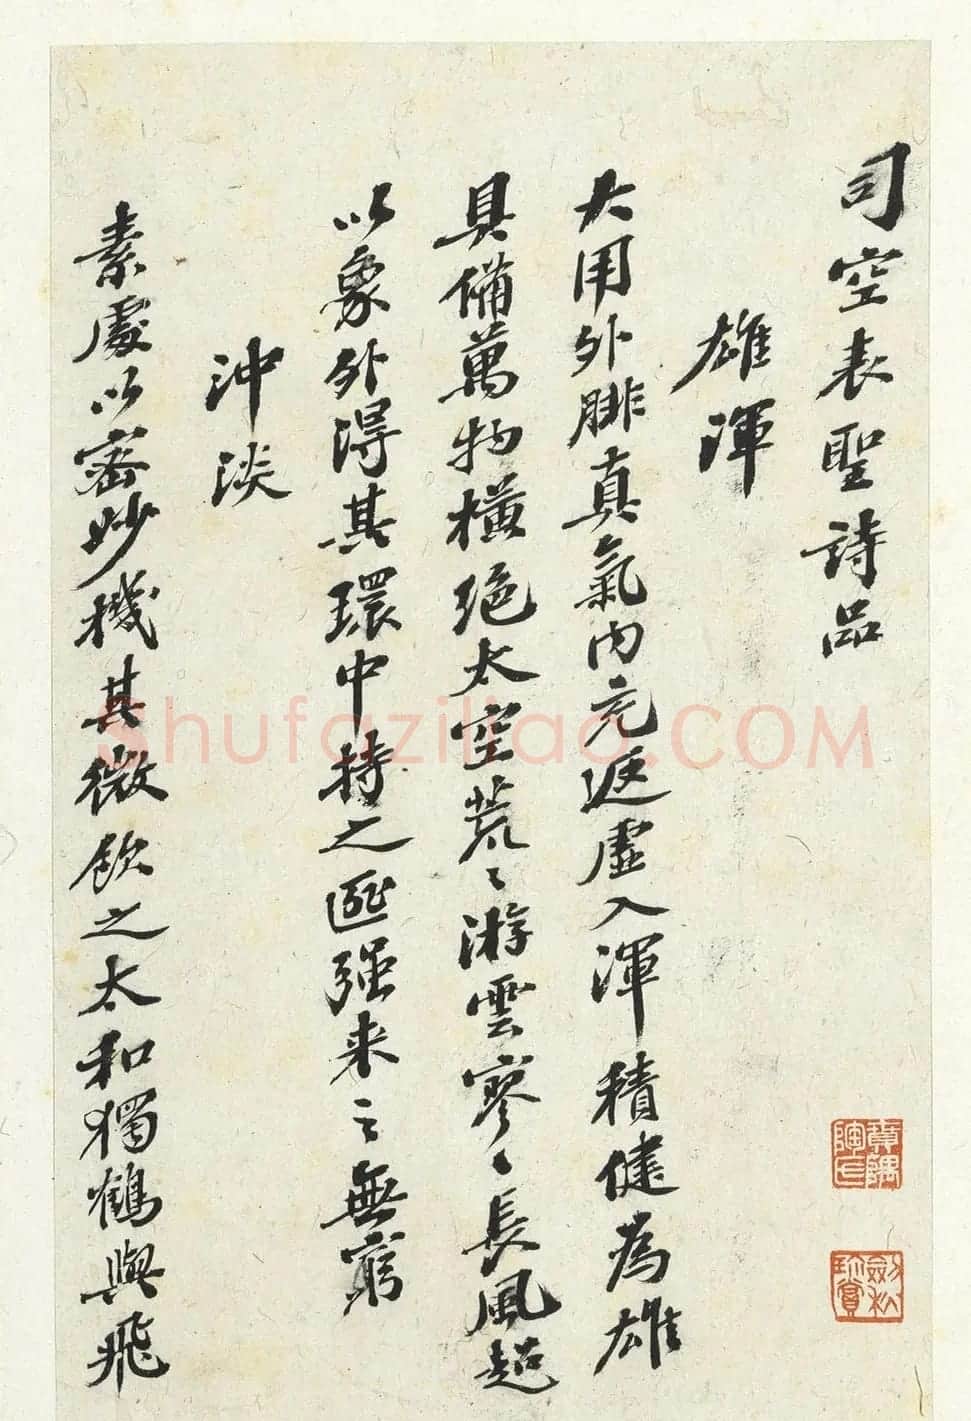 司空表聖詩品
雄渾
大用外腓真氣内充返虛入渾積健為雄
具備萬物橫絕太空荒〻游雲寥〻長風超
以象外得其環中持之匪强来之無窮
沖淡
素處以密妙機其微飲之太和獨鶴與飛
劍松珍賞
Shufaziliao.COM